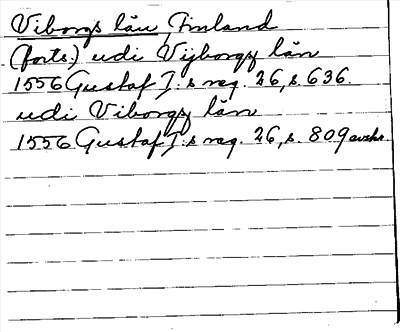 Viborgs län, Finland
(forts.) udi Vijborgz län
1556 Gustaf I:s reg. 26, s. 636.
udi Viborgz län
1556 Gustaf I:s reg. 26, s. 809 avskr.